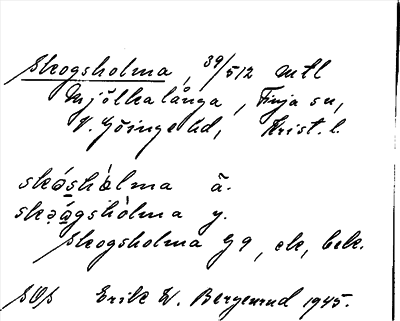 Skogsholma, 39/512 mtl
Mjölkalånga, Finja sn,
V. Göinge hd, Krist. l.
skǿshòlma ä.
skǝǻgshòlma y.
Skogsholma G9, ek, bek.
SOS Erik W. Bergenrud 1945.